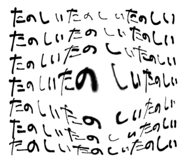 たのしいたのしいたのしい
たのしいたのしいたのしい
たのしいたのしいたのしい
たのしいたのしいたのしい
たのしいたのしいたのしい
たのしいたのしいたのしい
たのしいたのしいたのしい